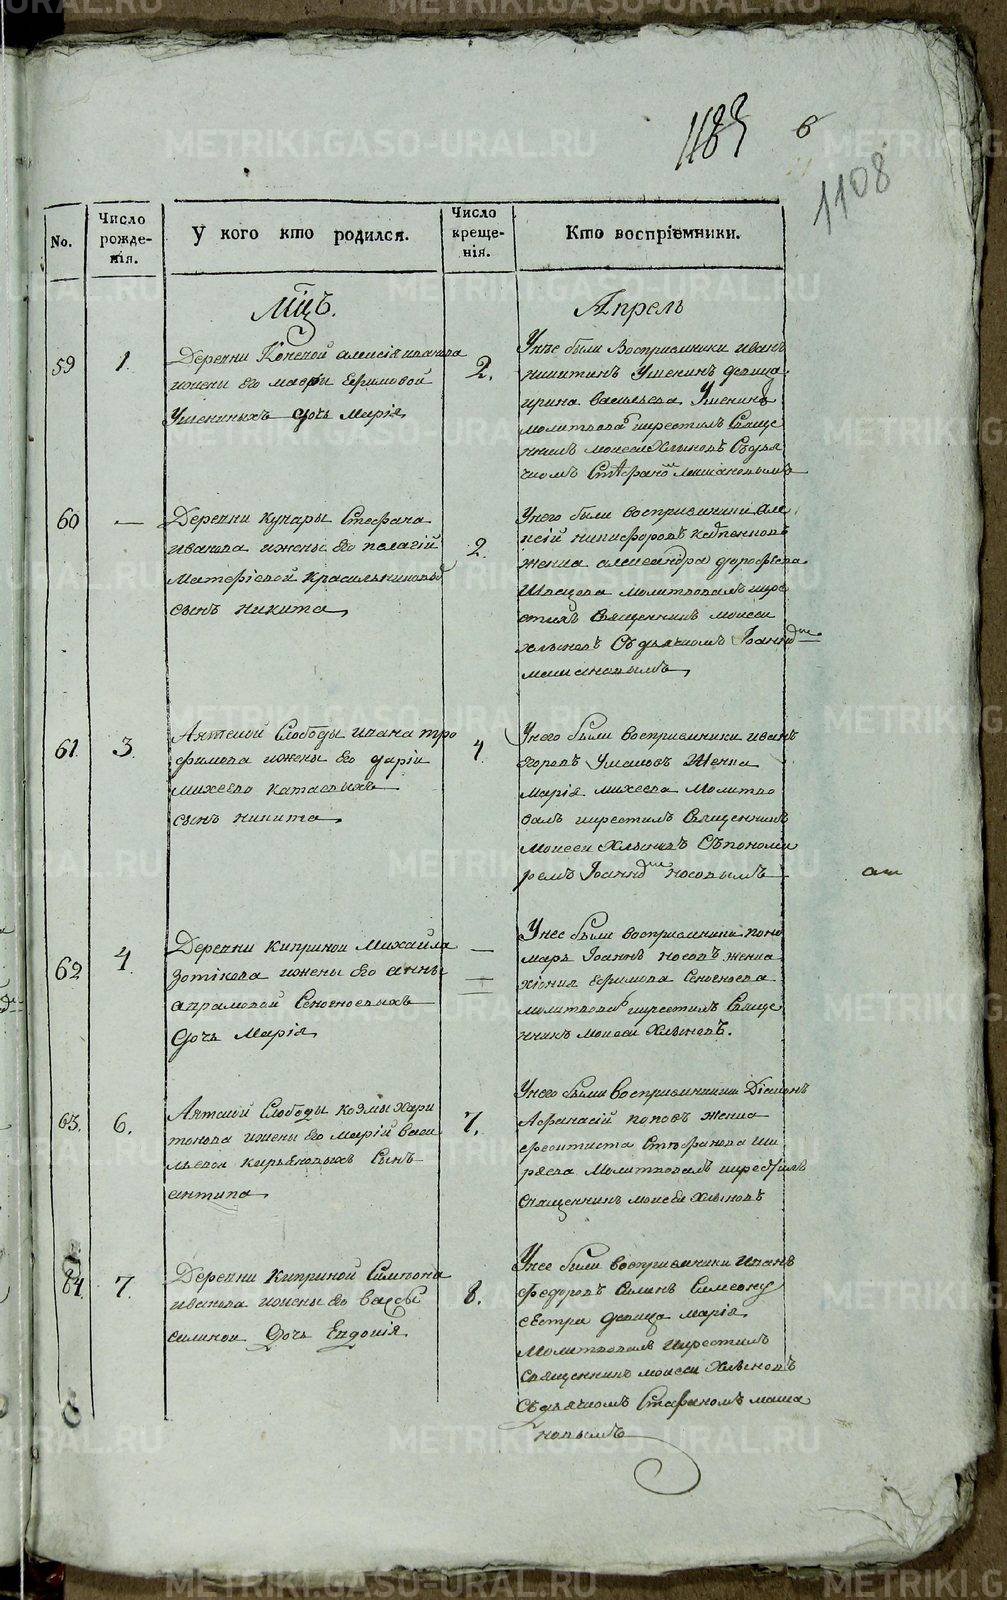 METRIKI.GASO-URAL.RU
1183 6
1108
No.
Число рожденія.
У кого кто родился.
Число крещенія.
Кто воспріемники.
Мцъ. Апрель
59 1.
Деревни Коневой алексія иванова
ижены его мавры Ефимовой
Ушениныхъ дочь Марія
2.
Унѣе были Воспріемники иванъ
никитинъ Ушенинъ девица
ирина васильева Ушенина
молитвовалъ икрестилъ Свяще
нникъ моисей Хлыновъ Съдья
чкомъ Стефаномъ машановымъ
60 —
Деревни кунары Стефана
иванова ижены его пелагіи
Матфіевой Красильниковыхъ
сынъ никита
2.
Унего были воспріемники але
ксій никифоровъ
женка александра дорофѣева
Швецова молитвовалъ икре
стилъ Священникъ моисей
хлыновъ Съдьячкомъ Іоанномъ
машановымъ
61. 3.
Аятской Слободы ивана тро
фимова ижены его даріи
михеево катаевыхъ
сынъ никита
4
Унего были воспріемники иванъ
егоровъ Ушаковъ Женка
Марія михеева Молитво
валъ икрестилъ Священникъ
Моисей Хлыновъ Съпонома
ремъ Іоанномъ носовымъ
62 4.
Деревни киприной Михайла
Зотікова ижены его анны
аврамовой Сеногноевыхъ
дочь Марія
—
Унее были воспріемники поно
марь Іоаннъ носовъ женка
хіонія Ефимова Сеногноева
молитвовалъ икрестилъ Свяще
нникъ моисей Хлыновъ.
63. 6.
Аятской Слободы козмы хари
тонова ижены его марій васи
льевой кирьяновыхъ Сынъ
антипа
7.
Унего были воспріемники Діаконъ
Афанасій поповъ женка
феоктиста Стефанова ши
ряева Молитвовалъ икрестилъ
Священникъ моисей хлыновъ
64 7.
Деревни киприной Симеона
иванова ижены его вассы
силиной Дочь Евдокія
8.
Унее были воспріемники иванъ
федоровъ Силинъ Симеону
сестра девица марія
Молитвовалъ икрестилъ
священникъ моисей Хлыновъ
Съдьячкомъ Стефаномъ маша
новымъ